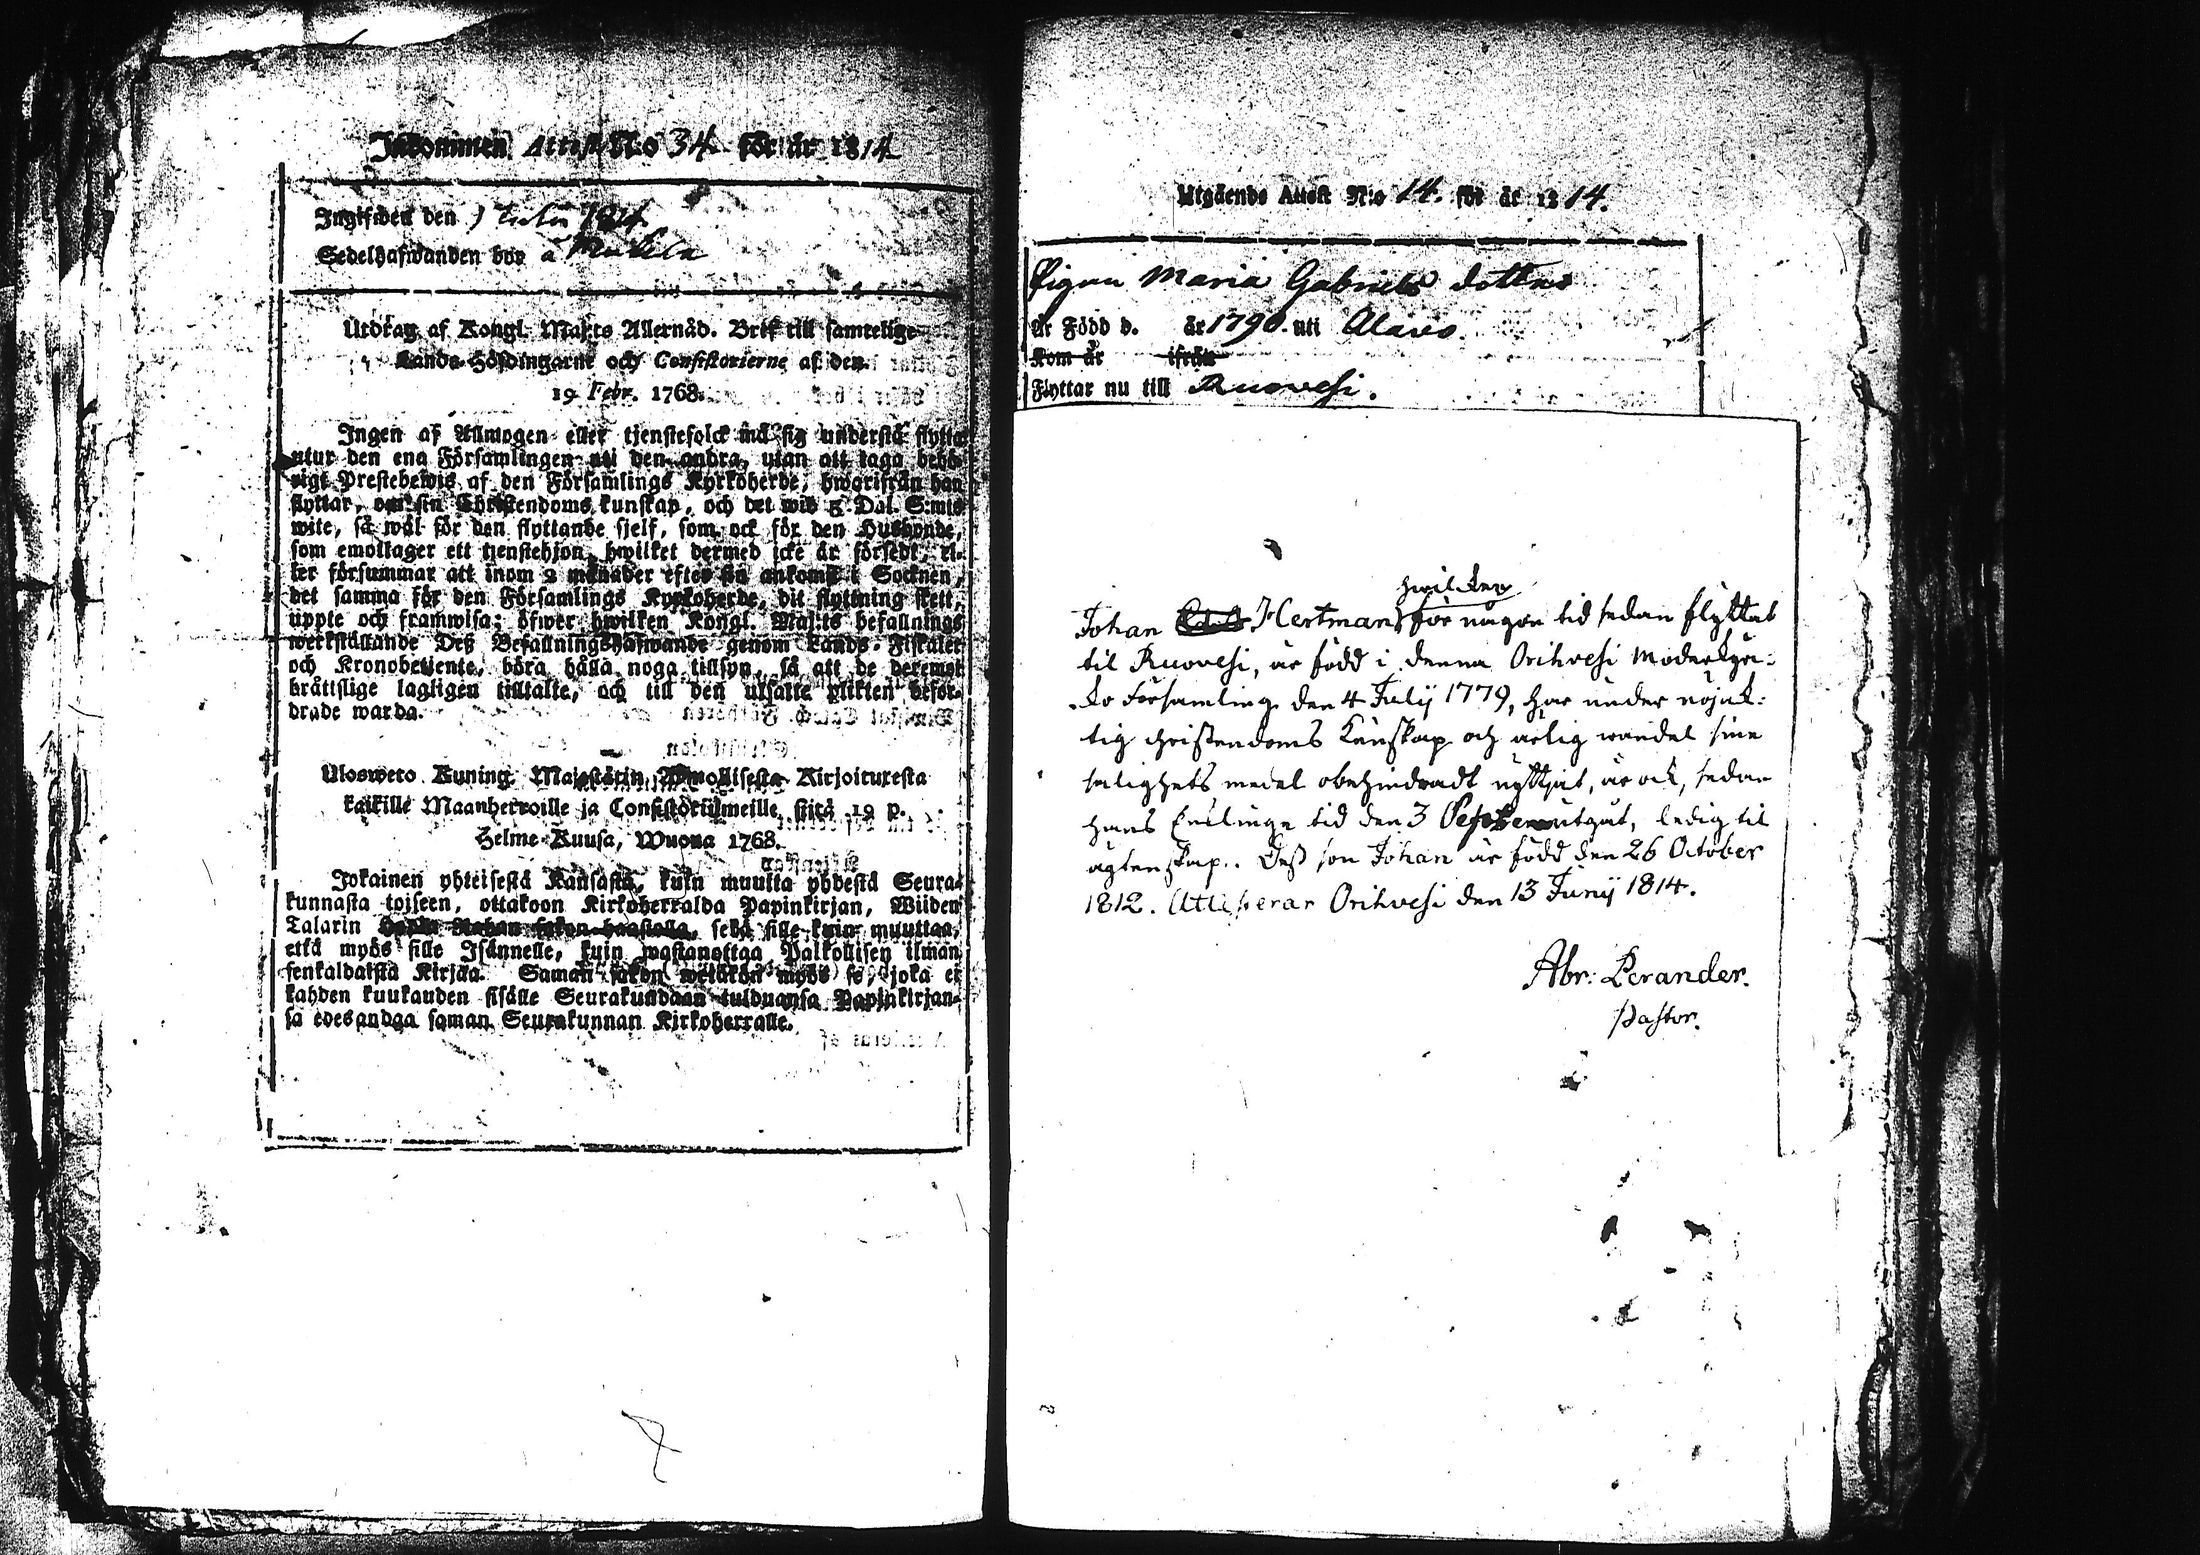 Inkommen Attest N:o 34 för år 1814
Ingifwen den 1 Julii 1814
Sedelhafwanden bor å
Utdrag af Kongl. Maj:ts Allernåd. Bref till samtelige
Lands-Höfdingarne och Consistorierne af den
19 Febr. 1768.
Ingen af Allmogen eller tjenstefolck må sig understå flytta
utur den ena Församlingen uti den andra, utan att taga behö-
rigt Prestebewis af den Församlings Kyrkoherde, hwarifrån han
flyttar, om sin Christendoms kunskap, och det wid 5 Dal. S:mts
wite, så wäl för den flyttande sjelf, som ock för den Husbonde,
som emottager ett tjenstehjon, hwilket dermed icke är försedt, el-
ler försummar att inom 2 månader efter sin ankomst i Socknen,
det samma för den Församlings Kyrkoherde, dit flyttning skett,
uppte och framwisa; öfwer hwilken Kongl. Maj:ts befallnings
werkställande Deß Befallningshafwande genom Lands-Fiskaler
och Kronobetjente, böra hålla noga tillsyn, så att de deremot
bråttslige lagligen tilltalte, och till den utsatte plikten befor-
drade warda.
Ulosweto Kuning. Majestätin Armollisesta Kirjoituxesta
kaikille Maanherroille ja Consistoriumeille, siitä 19 p.
Helme-Kuusa, Wuona 1768.
Jokainen yhteisestä Kansasta, kuin muutta yhdestä Seura-
kunnasta toiseen, ottakoon Kirkoherralda Papinkirjan, Wiiden
Talarin sekä sille kuin muuttaa,
että myös sille Isännelle, kuin wastanottaa Palkollisen ilman
senkaldaista Kirjaa. Saman sakon wetäkön myös se, joka ei
kahden kuukauden sisälle Seurakundaan tulduansa Papinkirjan-
sa edesandaa saman Seurakunnan Kirkoherralle.
Utgående Attest N:o 14. för år 1814.
Pigan Maria Gabriels dotter
Är Född d. år 1790. uti Alavo
Kom år ifrån
Flyttar nu till Ruovesi.
hwilken
Johan Hertman för någon tid sedan flyttat
til Ruovesi, är född i denna Orihvesi Moderkyr-
ko Församling den 4 Julij 1779, har under nöjak-
tig christendoms Kunskap och ärlig wandel sine
salighets medel obehindradt nyttjat, är ock, sedan
hans tid den 3 utgåt, ledig til
ägtenskap. Deß son Johan är född den 26 October
1812. Attesterar Orihvesi den 13 Junij 1814.
Abr: Perander.
Pastor.